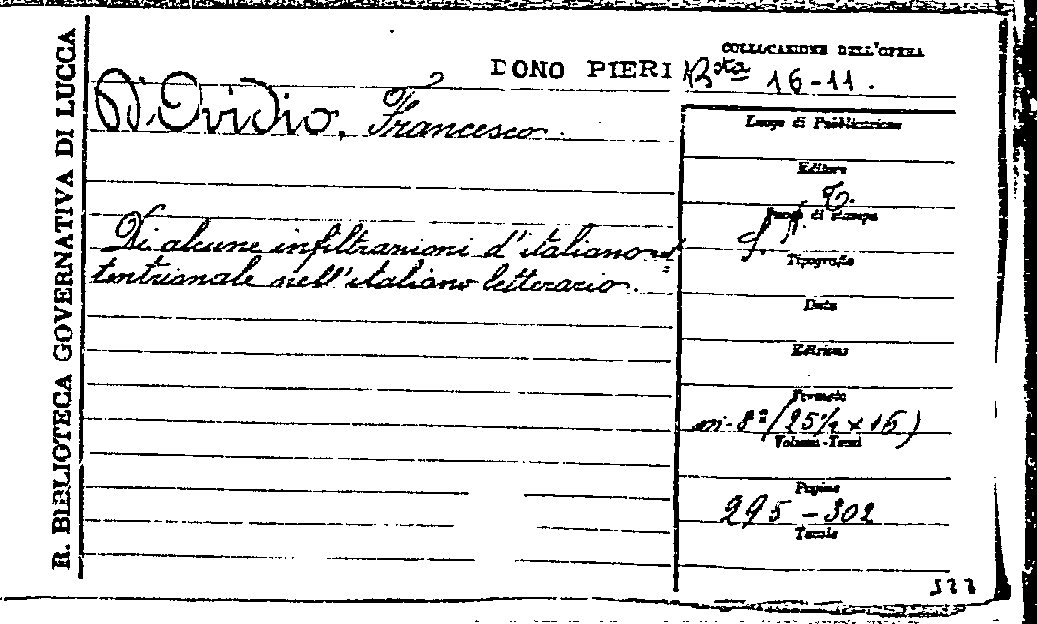 R. BIBLIOTECA GOVERNATIVA DI LUCCA
DONO PIERI
COLLOCAZIONE DELL'OPERA
Bsta 16-11.
D'Ovidio, Francesco.
Di alcune infiltrazioni d'italiano set=
tentrionale nell'italiano letterario.
Luogo di Pubblicazione
Editore
Luogo di stampa
Tipografia
Data
Edizione
Formato
in-8º (25½ x 16)
Volumi-Tomi
Pagine
295-302
Tavole